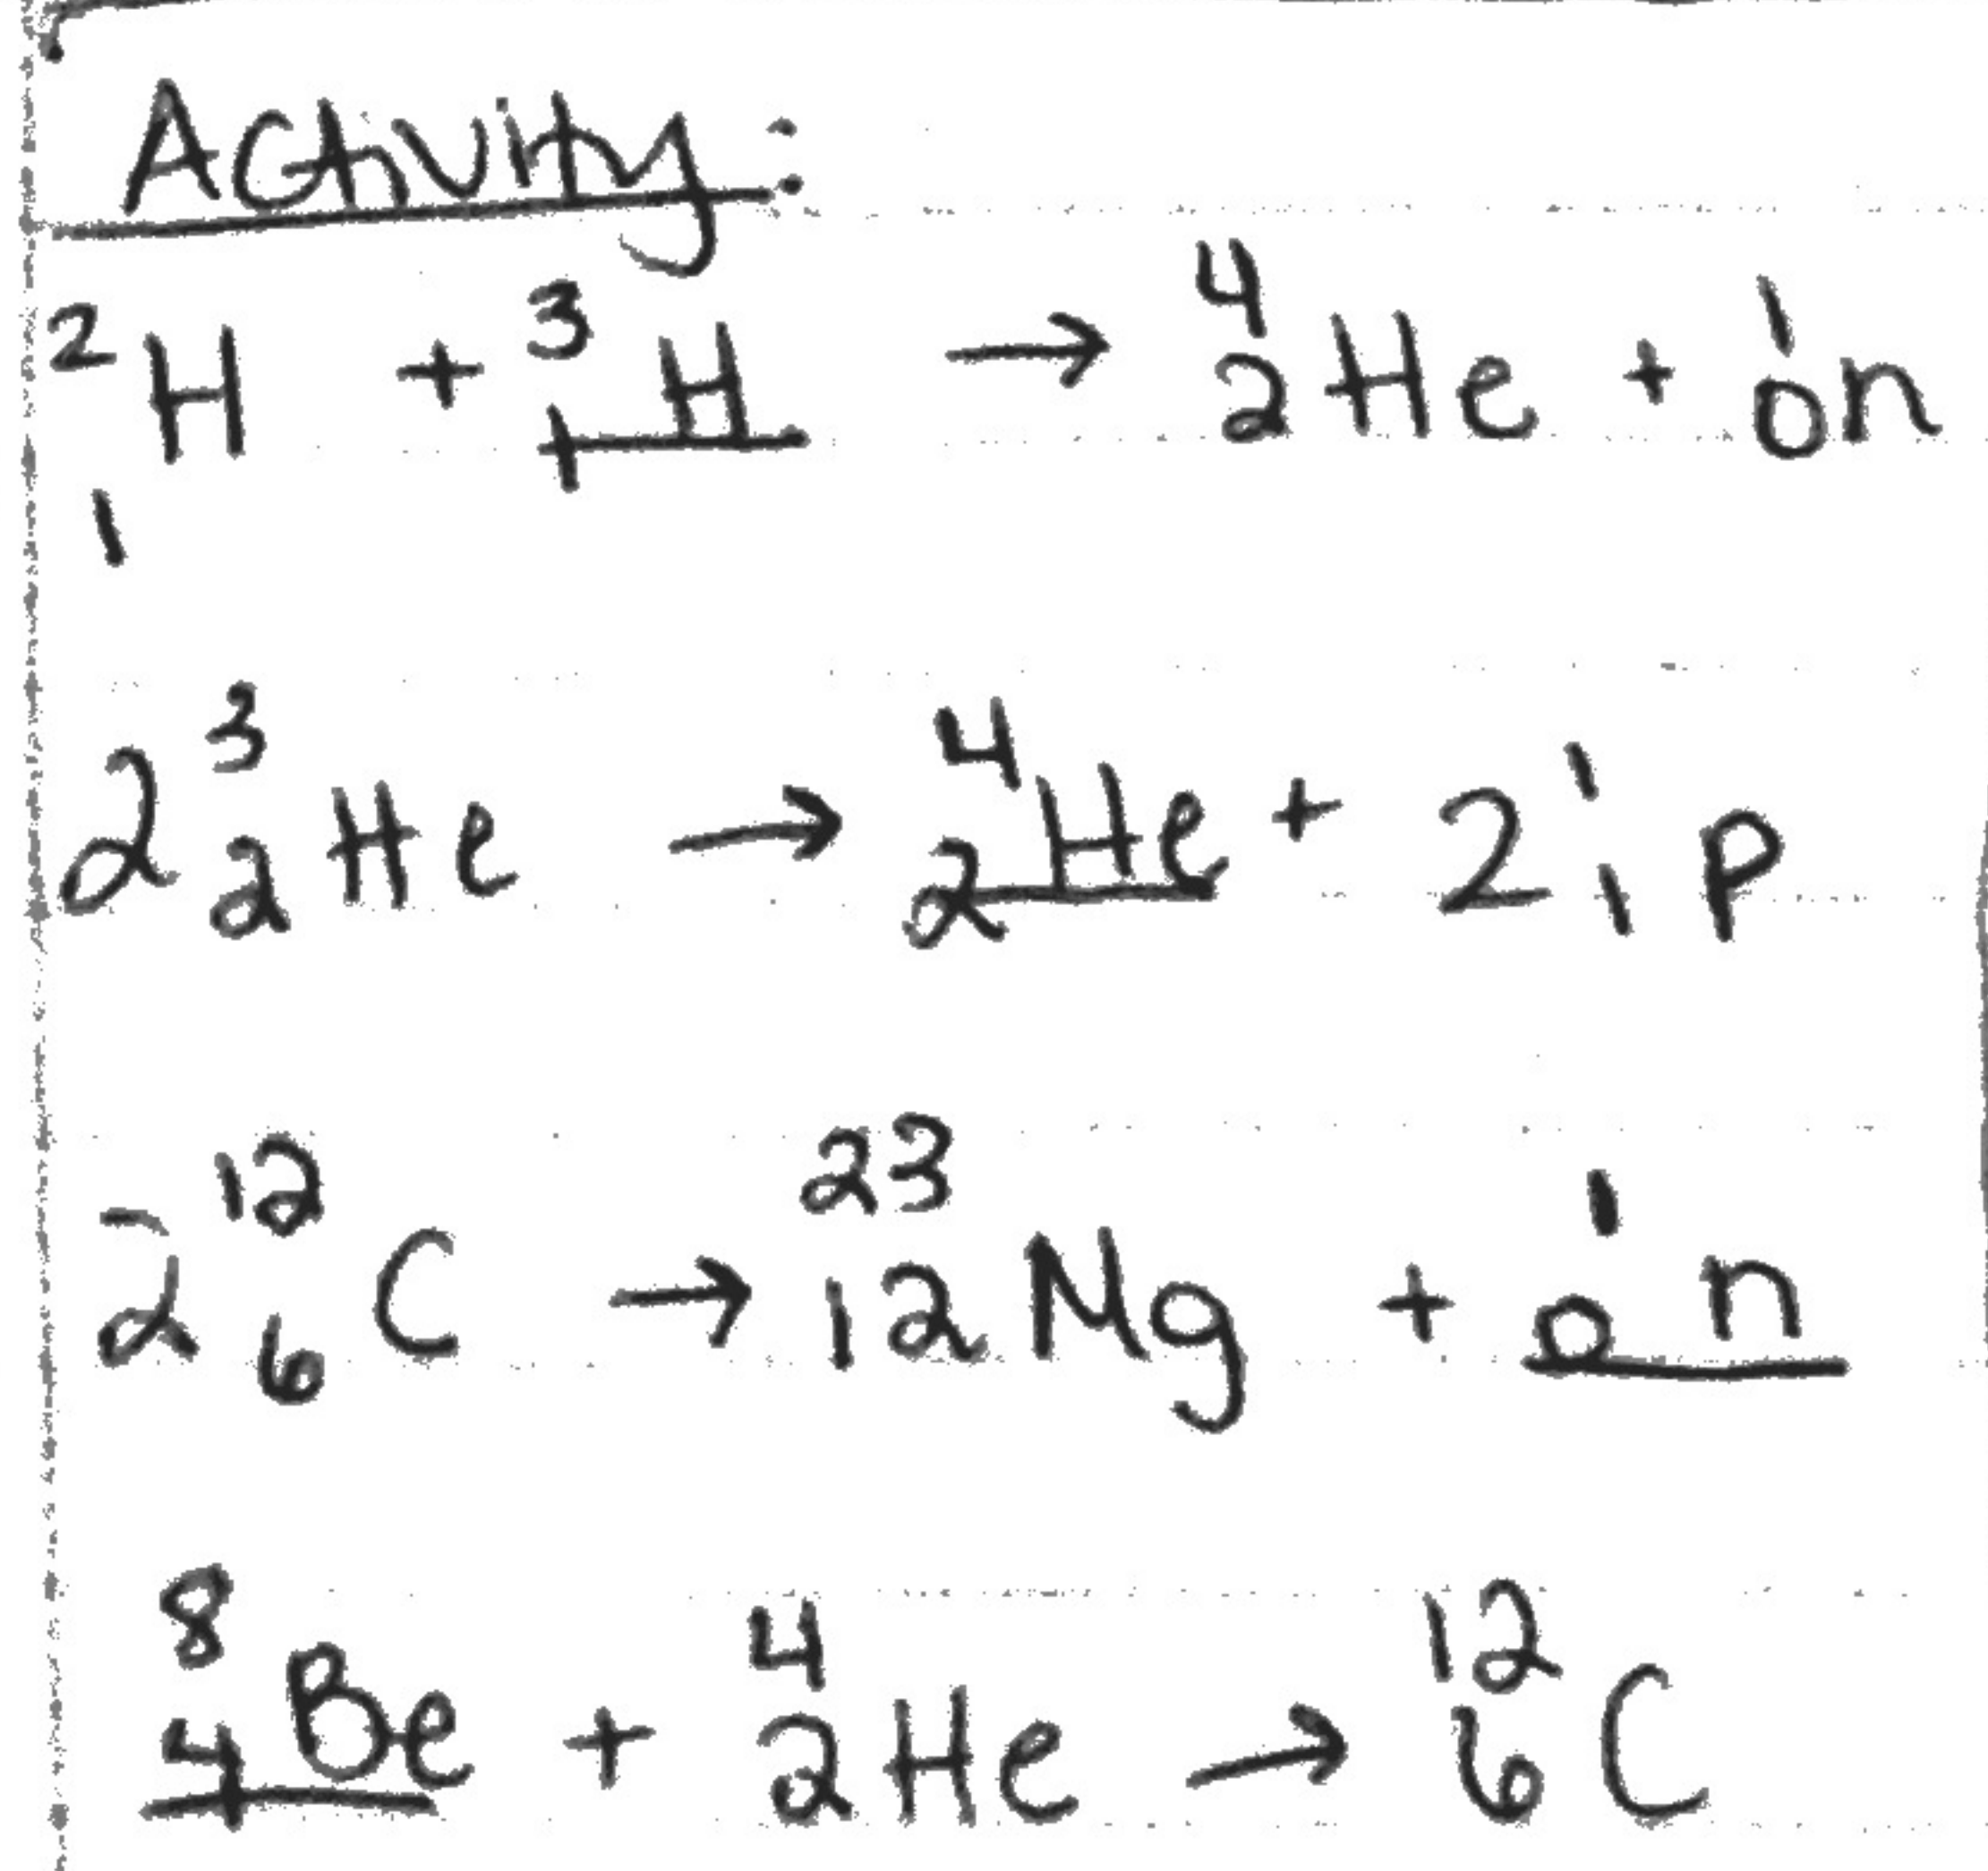 Activity:
²₁H + ³₁H → ⁴₂He + ¹₀n
2 ³₂He → ⁴₂He + 2 ¹₁p
2 ¹²₆C → ²³₁₂Mg + ¹₀n
⁸₄Be + ⁴₂He → ¹²₆C